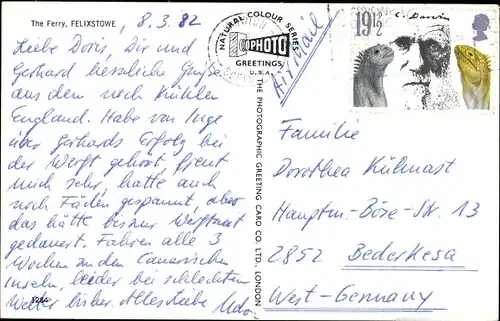 The Ferry, FELIXSTOWE
8.3.82
Liebe Doris, Dir und
Gerhard herzliche Grüsse
aus dem noch kühlen
England. Habe von Inge
über Gerhards Erfolg bei
der Werft gehört, freut
mich sehr, hatte auch
noch Fäden gespannt, aber
das hätte bis zur
gedauert. Fahren alle 3
Wochen zu den Canarischen
Inseln, leider bei schlechtem
Wetter bisher. Alles Liebe Udo
NATURAL COLOUR SERIES
PHOTO
GREETINGS
U.K.
Air Mail
THE PHOTOGRAPHIC GREETING CARD CO. LTD. LONDON
19½
C. Darwin
Familie
Dorothea Kühnast
Hauptm.-Böse-Str. 13
2852 Bederkesa
West-Germany